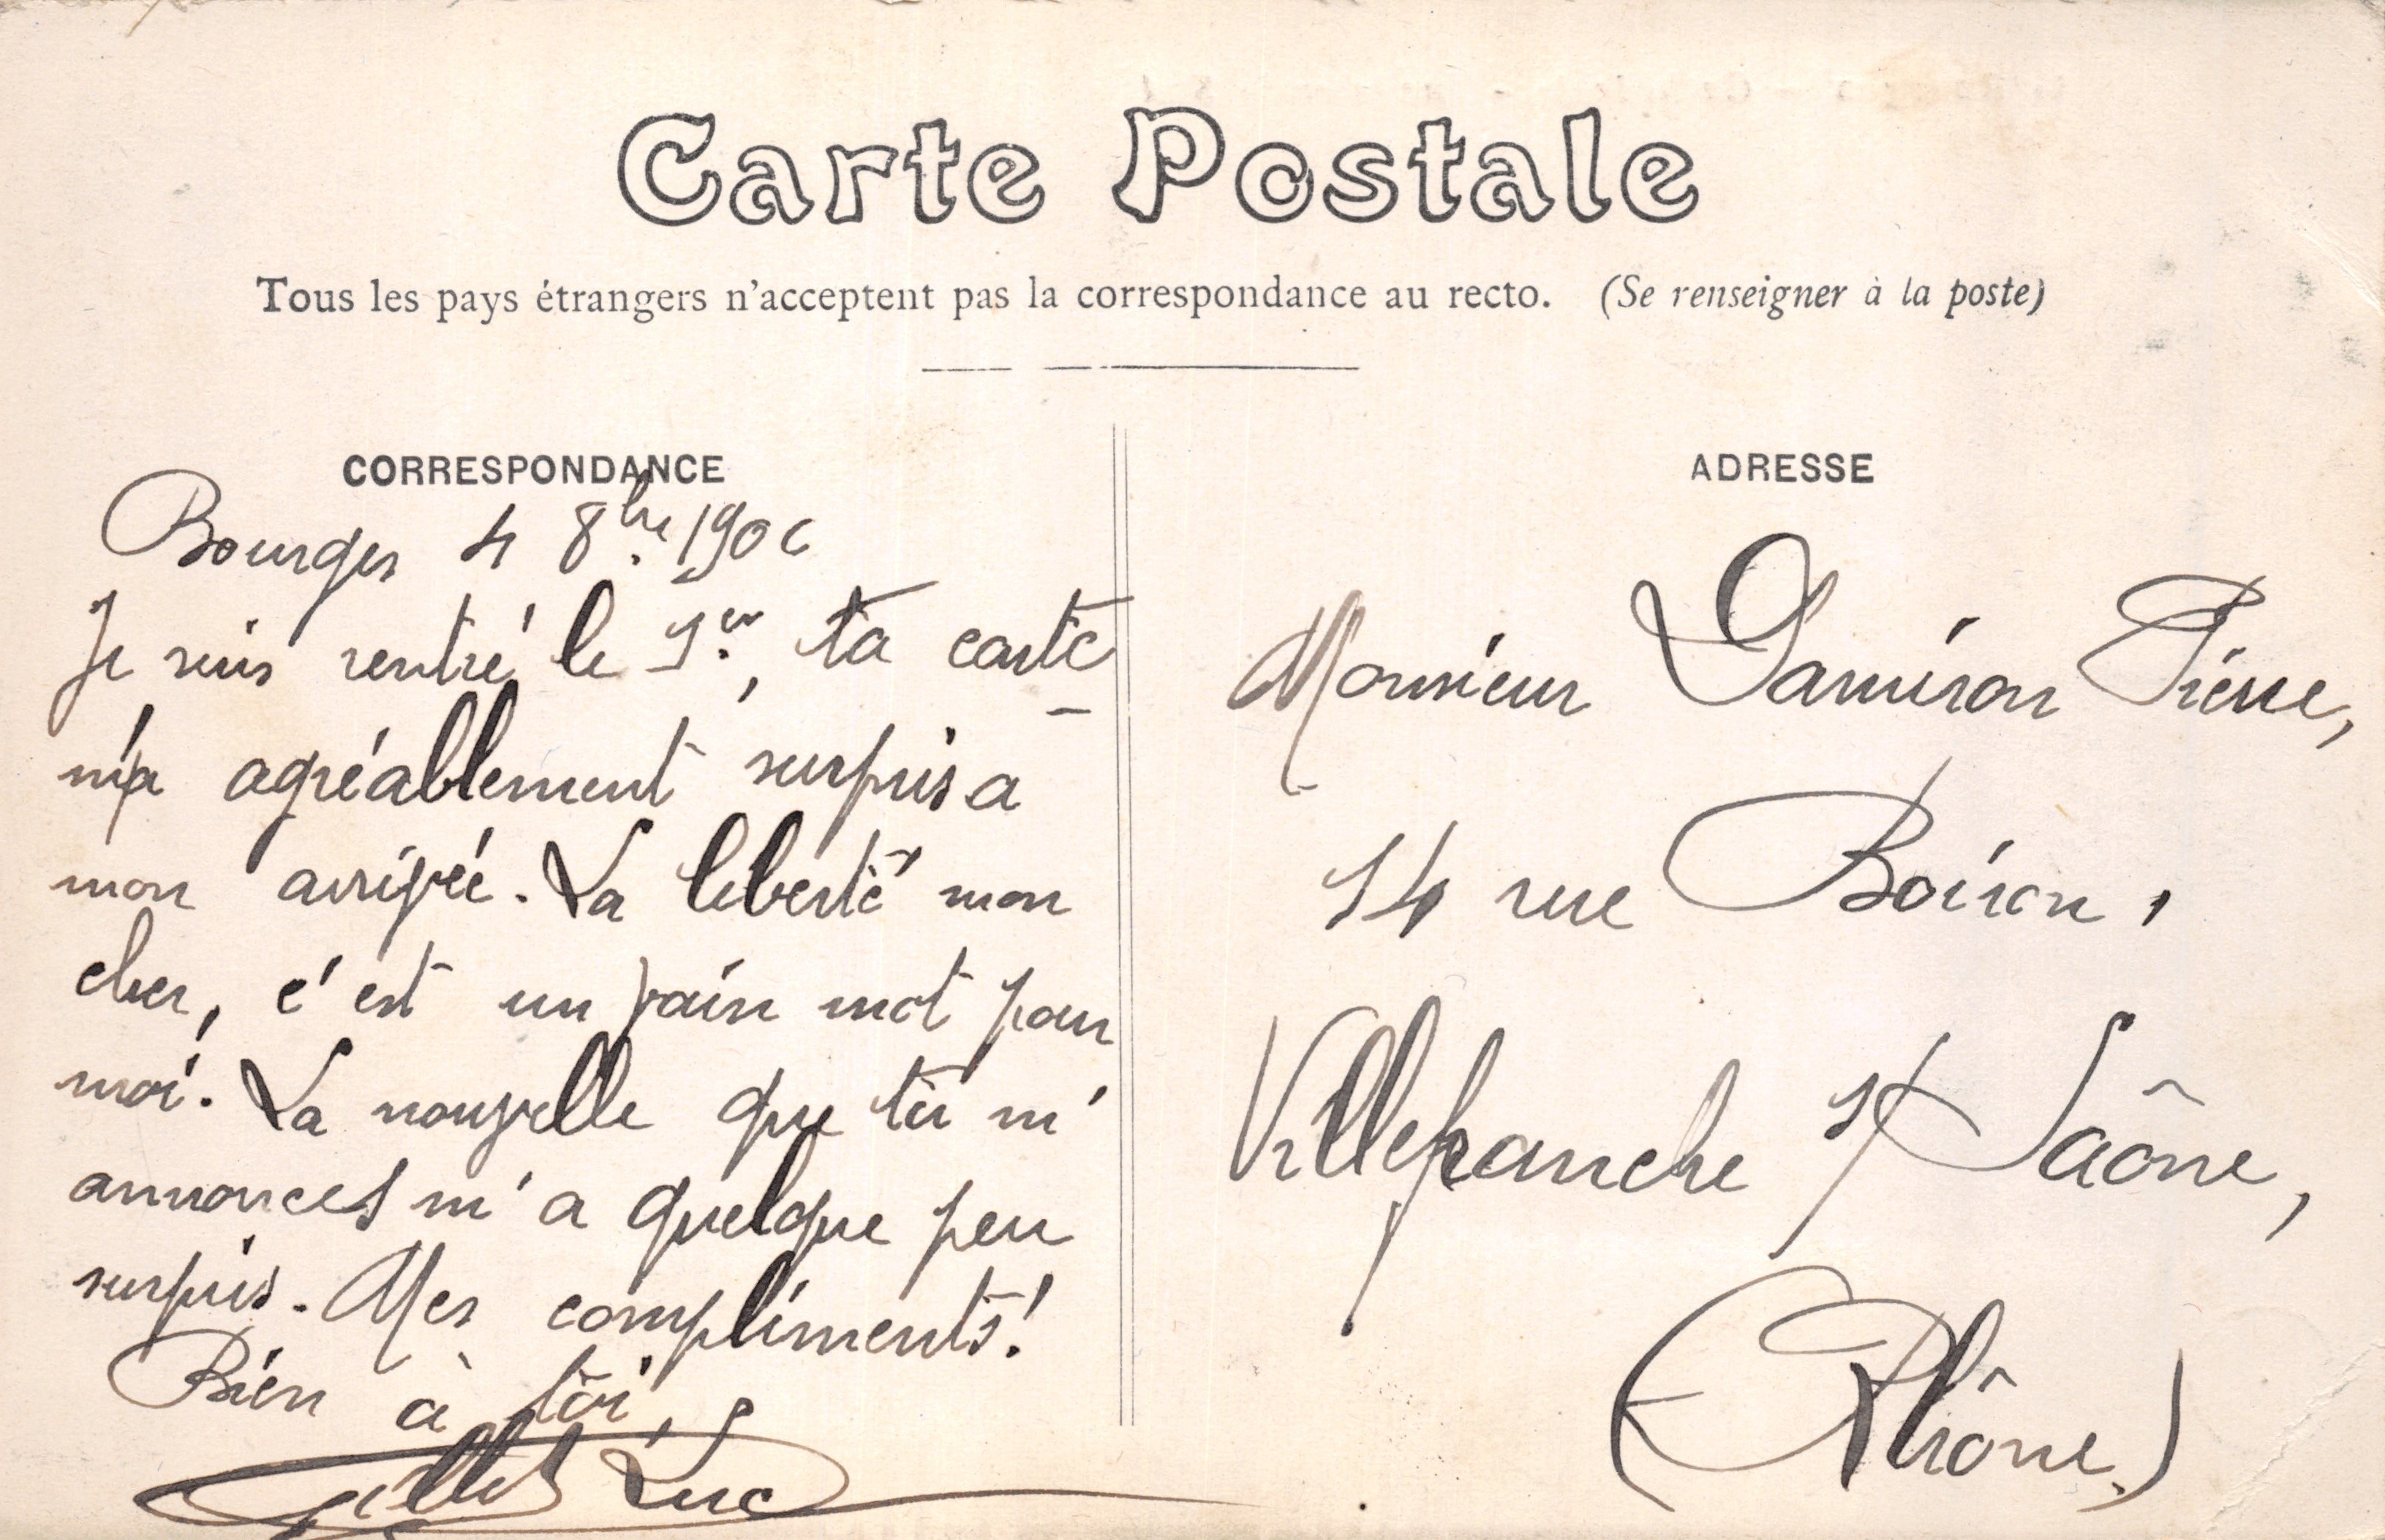 Carte Postale
Tous les pays étrangers n'acceptent pas la correspondance au recto. (Se renseigner à la poste)
CORRESPONDANCE
Bourges 4 8bre 1906
Je suis rentré le 1er, ta carte
m'a agréablement surpris a
mon arrivée. La liberté mon
cher, c'est un vain mot pour
moi. La nouvelle que tu m'
annonces m'a quelque peu
surpris. Mes compliments!
Bien à toi,
Gillet Luc
ADRESSE
Monsieur Damiron Pierre,
14 rue Boiron,
Villefranche s/ Saône,
(Rhône)